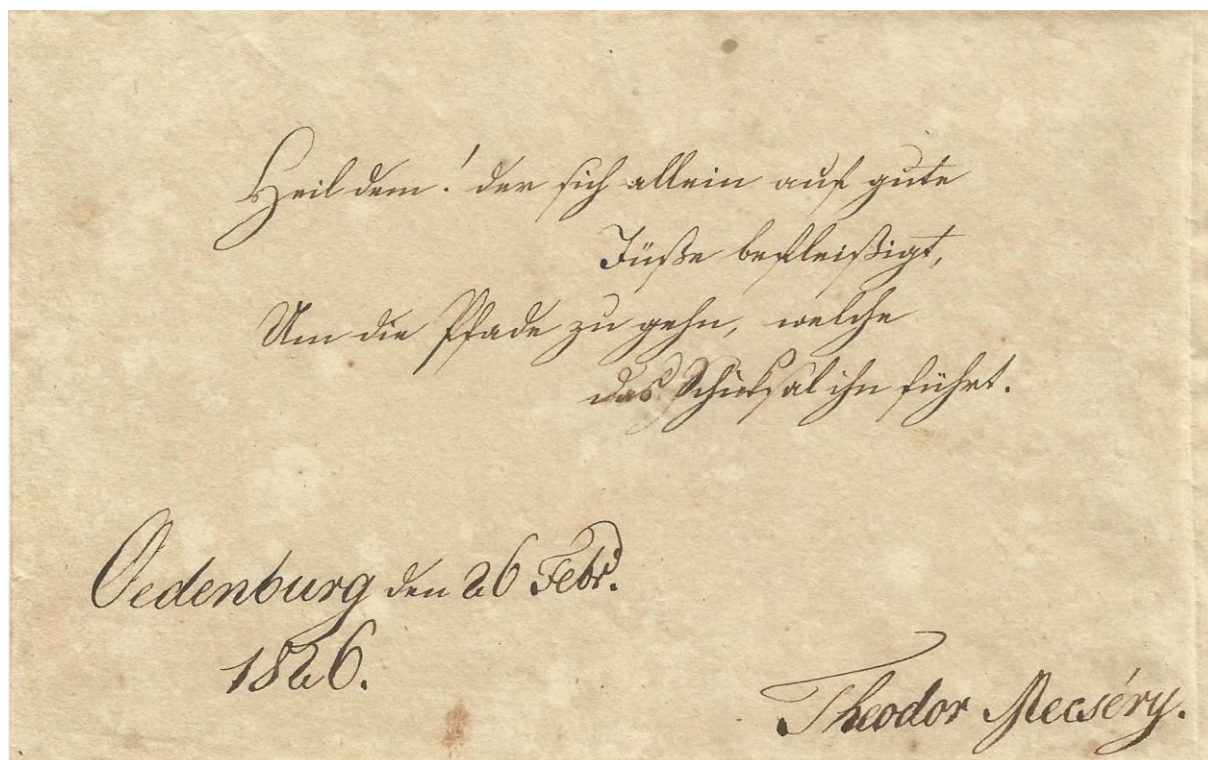 Heil dem! der sich allein auf gute
Füße befleißigt,
Um die Pfade zu gehn, welche
das Schicksal ihn führt.
Oedenburg den 26 Febr.
1826.
Theodor Mecséry.